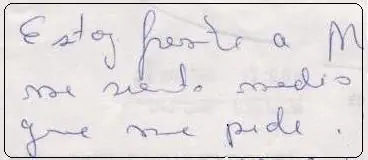 Estoy frente a M
me siento medio
que me pide.